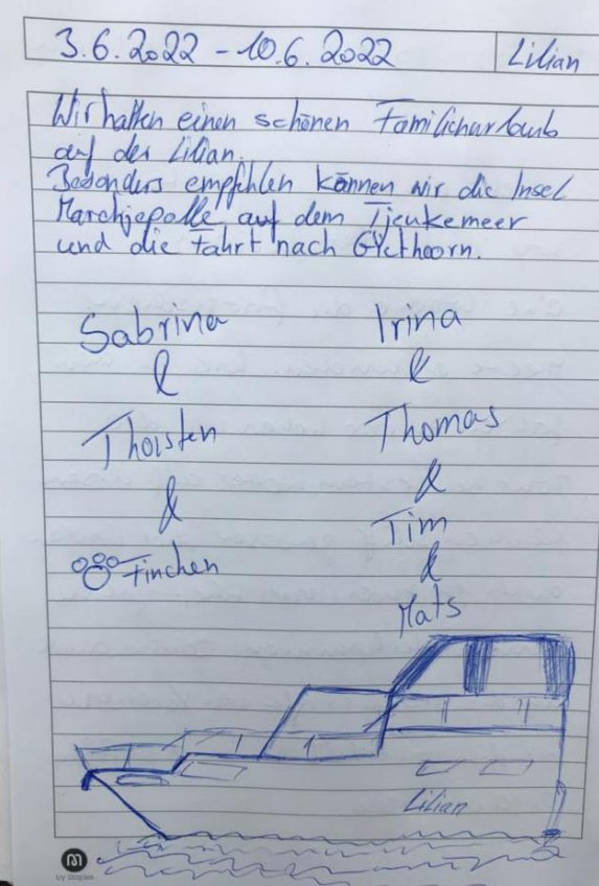 3.6.2022 - 10.6.2022 Lilian
Wir hatten einen schönen Familienurlaub
auf der Lilian.
Besonders empfehlen können wir die Insel
Marchjepolle auf dem Tjeukemeer
und die Fahrt nach Gycthoorn.
Sabrina Irina
& &
Thorsten Thomas
& &
Finchen Tim
&
Mats
Lilian
by Staples